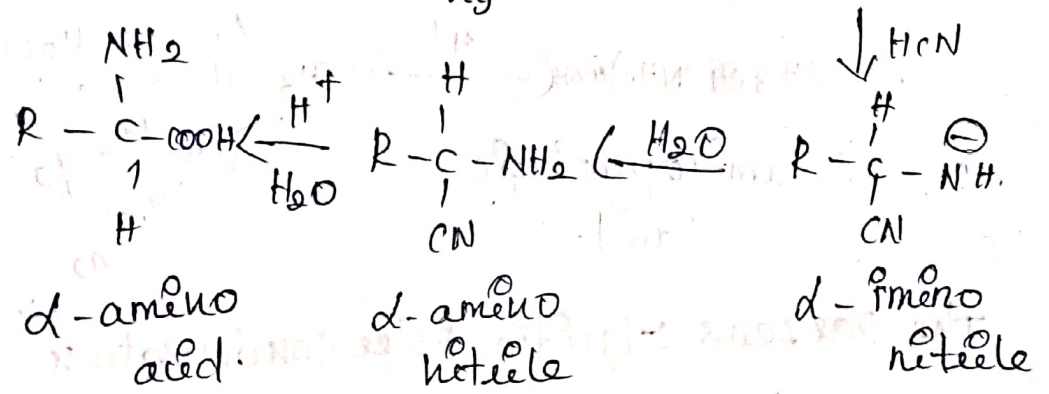 ↓ HCN
NH2
R – C – COOH ← H+ / H2O
H
H
R – C – NH2 ← H2O
CN
H
R – C – N⊖H.
CN
α-amino
acid.
α-amino
nitrile
α-imino
nitrile